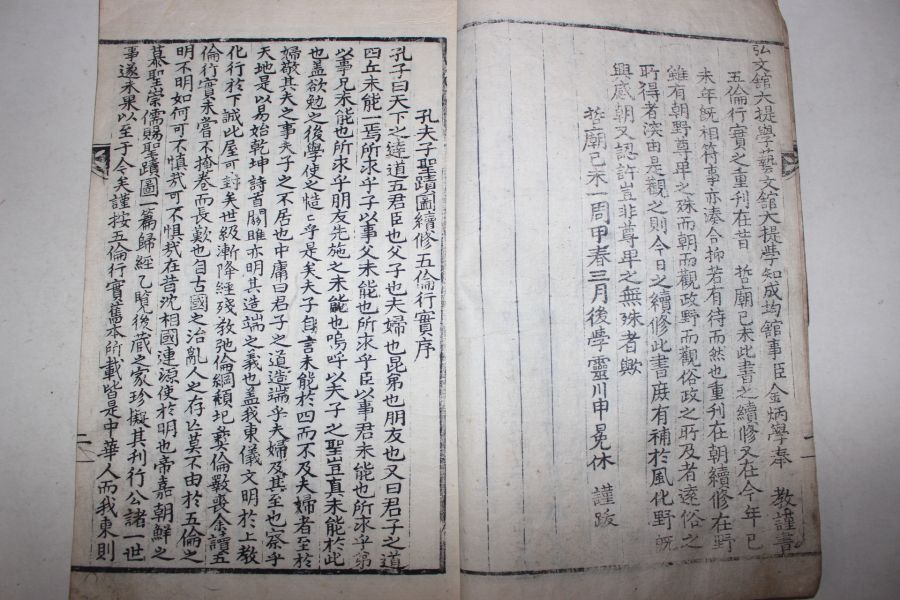 弘文館大提學藝文館大提學知成均館事臣金炳學奉 教謹書
五倫行實之重刊在昔 哲廟己未此書之續修又在今年己
未年既相符事亦湊合抑若有待而然也重刊在朝續修在野
雖有朝野尊卑之殊而朝而觀政野而觀俗政之所及者遠俗之
所得者深由是觀之則今日之續修此書庶有補於風化野既
興感朝又認許豈非尊卑之無殊者歟
哲廟己未一周甲春三月後學靈川申冕休 謹跋
孔夫子聖蹟圖續修五倫行實序
孔子曰天下之達道五君臣也父子也夫婦也昆弟也朋友也又曰君子之道
四丘未能一焉所求乎子以事父未能也所求乎臣以事君未能也所求乎弟
以事兄未能也所求乎朋友先施之未能也嗚呼以夫子之聖豈真未能於此
也盖欲勉之後學使之慥〻乎是矣夫子自言未能於四而不及夫婦者至於
婦敬其夫之事夫子之不居也中庸曰君子之道造端乎夫婦及其至也察乎
天地是以易始乾坤詩首關雎亦明其造端之義也盖我東儀文明於上教
化行於下誠此屋可封矣世級漸降經殘教弛倫綱頹圮彜倫斁喪余讀五
倫行實未嘗不掩卷而長歎也自古國之治亂人之存亡莫不由於五倫之
明不明如何可不慎哉可不惧哉在昔沈相國連源使於明也帝嘉朝鮮之
慕聖崇儒賜聖蹟圖一篇歸經乙覧後蔵之家珍擬其刊行公諸一世
事遂未果以至于今矣謹按五倫行實舊本所載皆是中華人而我東則
二